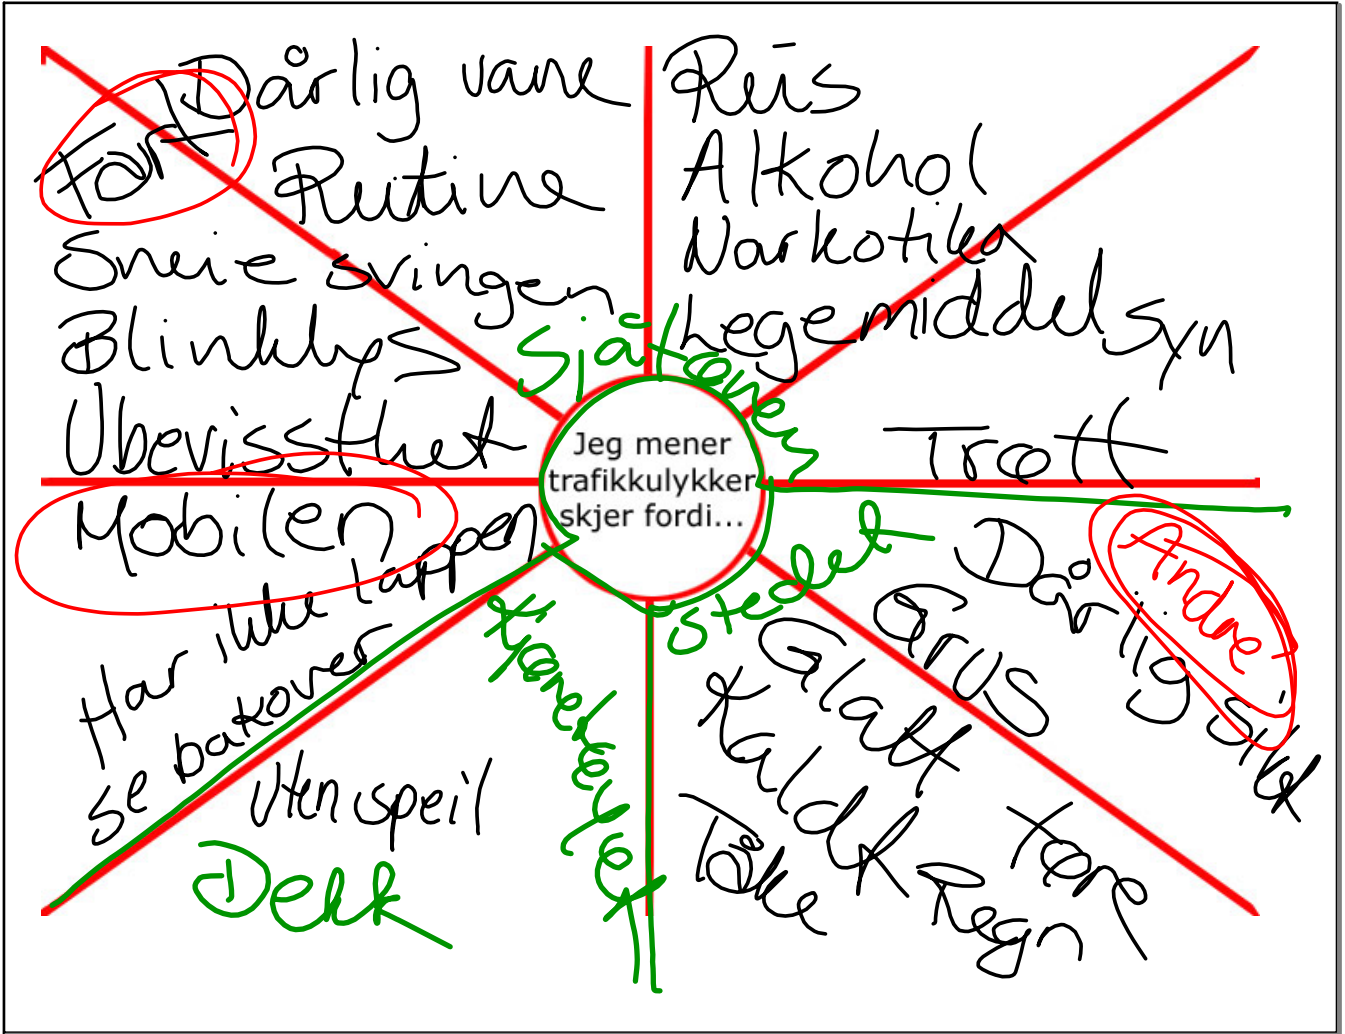 Dårlig vane
Fart
Rutine
Sneie svingen
Blinklys
Ubevissthet
Mobilen
Har ikke lappen
se bakover
Uten speil
Dekk
Rus
Alkohol
Narkotika
Legemiddel
Syn
Trøtt
Sjåføren
Jeg mener
trafikkulykker
skjer fordi...
stedet
Kjøretøyet
Andre
Dårlig sikt
Grus
Glatt
Kaldt
Tåke
Regn